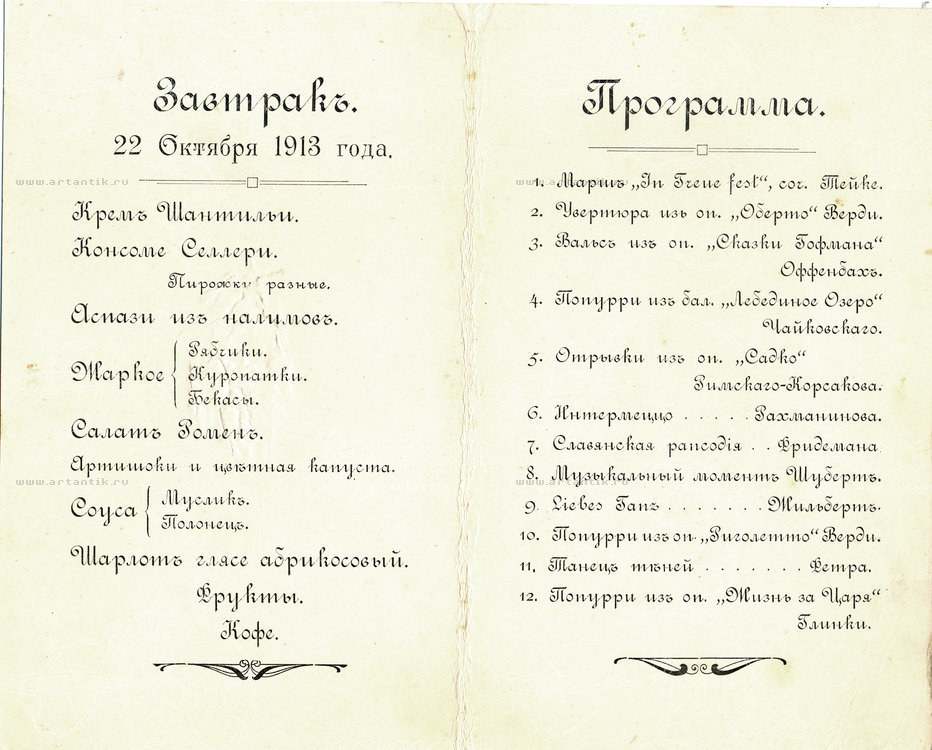 Завтракъ.
22 Октября 1913 года.
www.artantik.ru
Кремъ Шантильи.
Консоме Селлери.
Пирожки разные.
Аспази изъ налимовъ.
Жаркое { Рябчики.
Куропатки.
Бекасы.
Салатъ Роменъ.
Артишоки и цвѣтная капуста.
www.artantik.ru
Соуса { Мусликъ.
Полонецъ.
Шарлотъ глясе абрикосовый.
Фрукты.
Кофе.
Программа.
www.artantik.ru
1. Маршъ „In Treue fest“, соч. Тейке.
2. Увертюра изъ оп. „Оберто“ Верди.
3. Вальсъ изъ оп. „Сказки Гофмана“
Оффенбахъ.
4. Попурри изъ бал. „Лебединое Озеро“
Чайковскаго.
5. Отрывки изъ оп. „Садко“
Римскаго-Корсакова.
6. Интермеццо . . . . . Рахманинова.
7. Славянская рапсодія . . Фридемана
8. Музыкальный моментъ Шубертъ.
www.artantik.ru
9. Liebes Tanz . . . . . . . Жильбертъ.
10. Попурри изъ оп. „Риголетто“ Верди.
11. Танецъ тѣней . . . . . . . Фетра.
12. Попурри изъ оп. „Жизнь за Царя“
Глинки.